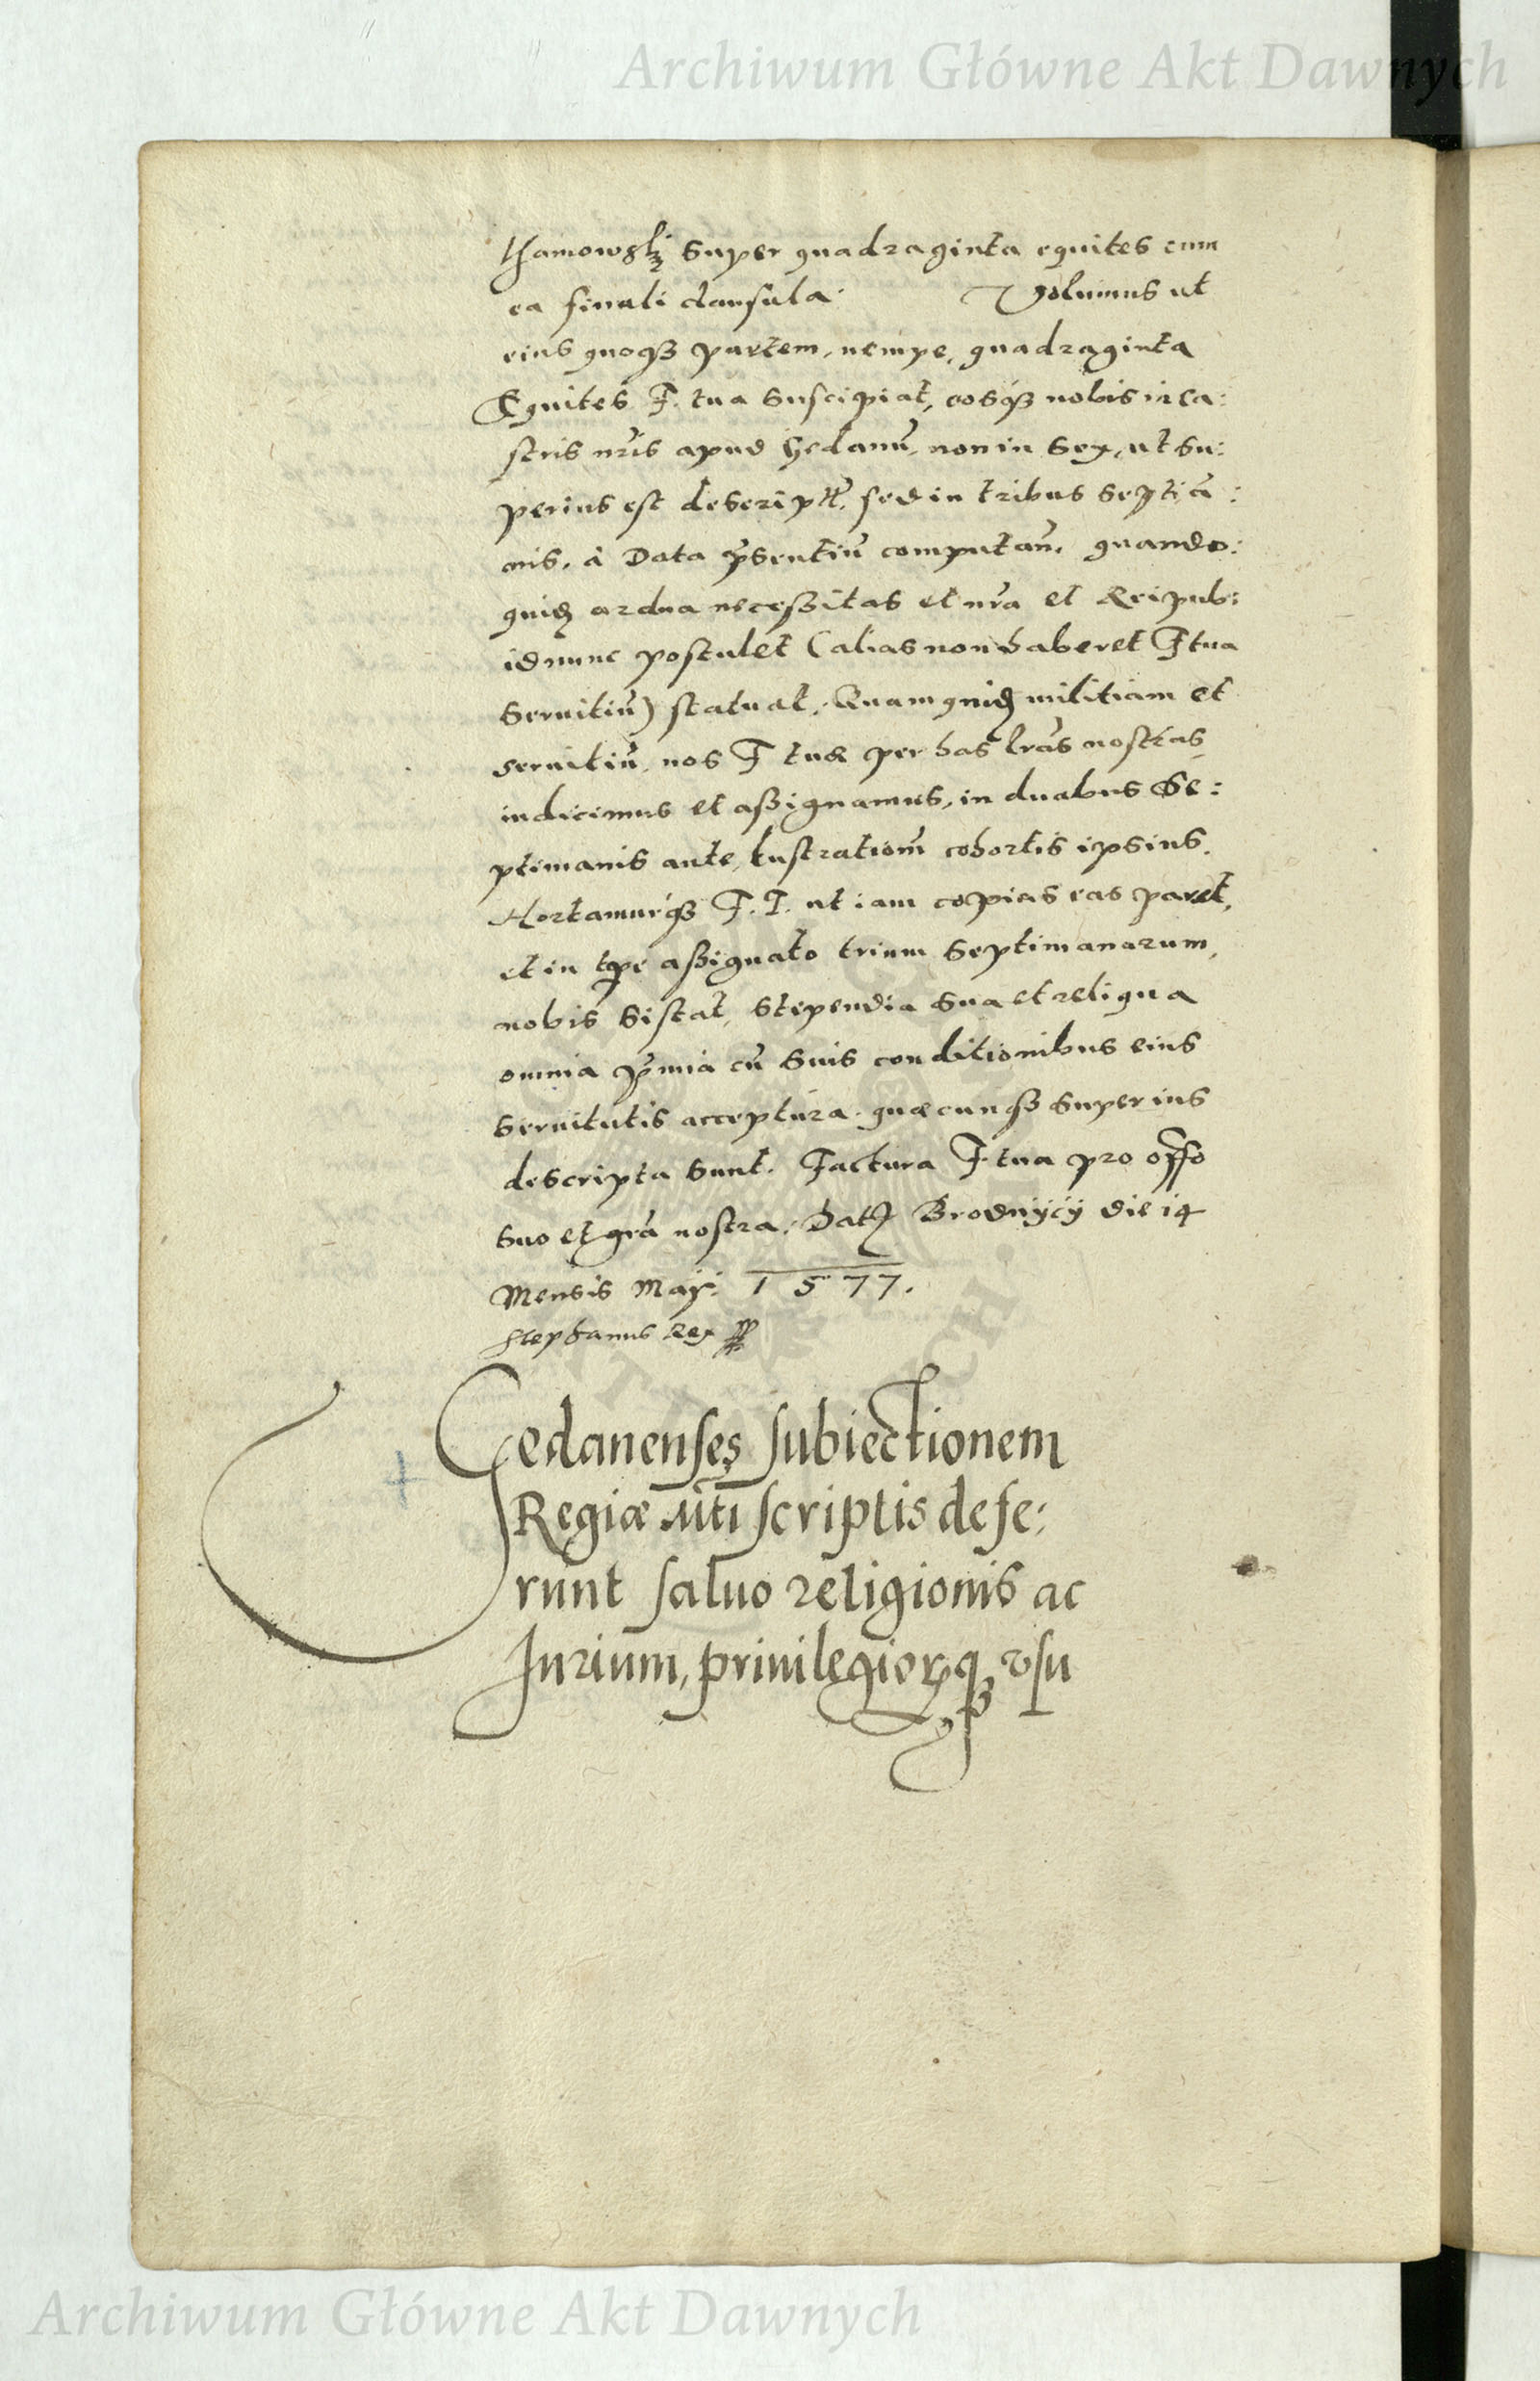 Archiwum Główne Akt Dawnych
super quadraginta equites cum
ea finali clausula. Volumus ut
eius quoqȝ partem, nempe, quadraginta
Equites F. tua suscipiat, eosqȝ nobis in ca:
stris nr̃is apud Gedanũ, non in sex, ut su:
perius est descriptũ, sed in tribus septiã:
nis, à Data pñsentiũ computañ. quando:
quidẽ ardua necessitas et nr̃a et Reipub:
id nunc postulet (alias non haberet F tua
seruitiũ) statuat. Quam quidẽ militiam et
seruitiũ, nos F tuæ per has lr̃as nostras
indicimus et assignamus, in duabus Se:
ptimanis ante, lustrationẽ cohortis ipsius.
Hortamurqȝ F. T. ut iam copias eas paret,
et in tp̃e assignato trium septimanarum,
nobis sistat, stipendia sua et reliqua
omnia p̃mia cũ suis conditionibus eius
seruitutis acceptura. quæcunqȝ superius
descripta sunt. Factura F. tua pro offo
suo et gr̃a nostra. Datȝ Brodnÿcÿ die 14
Mensis Maÿ: 1577.
Stephanus Rex
Gedanenses subiectionem
Regiæ Mti scriptis defe:
runt saluo religionis ac
Iurium, priuilegiorꝝqȝ vsu
Archiwum Główne Akt Dawnych